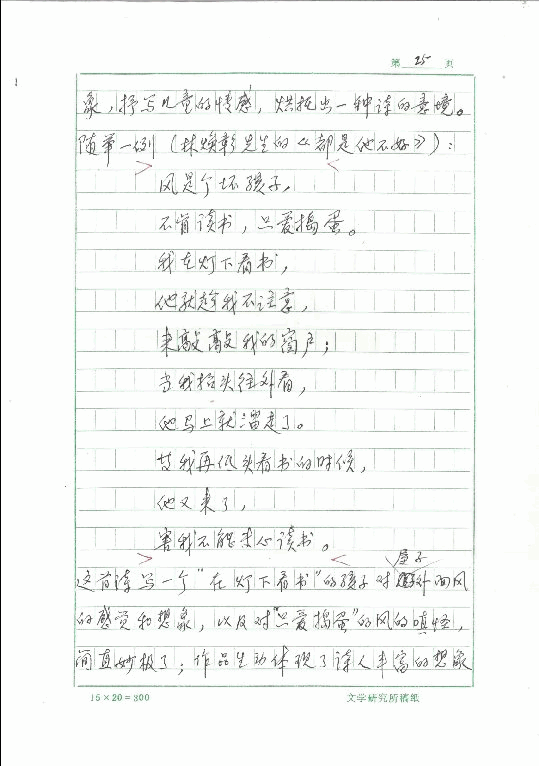 第 25 页
象，抒写儿童的情感，烘托出一种诗的意境。
随举一例（林焕彰先生的《都是他不好》）：
风是个坏孩子，
不肯读书，只爱捣蛋。
我在灯下看书，
他就趁我不注意，
来敲敲我的窗户；
当我抬头往外看，
他马上就溜走了。
等我再低头看书的时候，
他又来了，
害我不能专心读书。
屋子
这首诗写一个"在灯下看书"的孩子对外面风
的感觉和想象，以及对"只爱捣蛋"的风的嗔怪，
简直妙极了；作品生动体现了诗人丰富的想象
15×20＝300
文学研究所稿纸